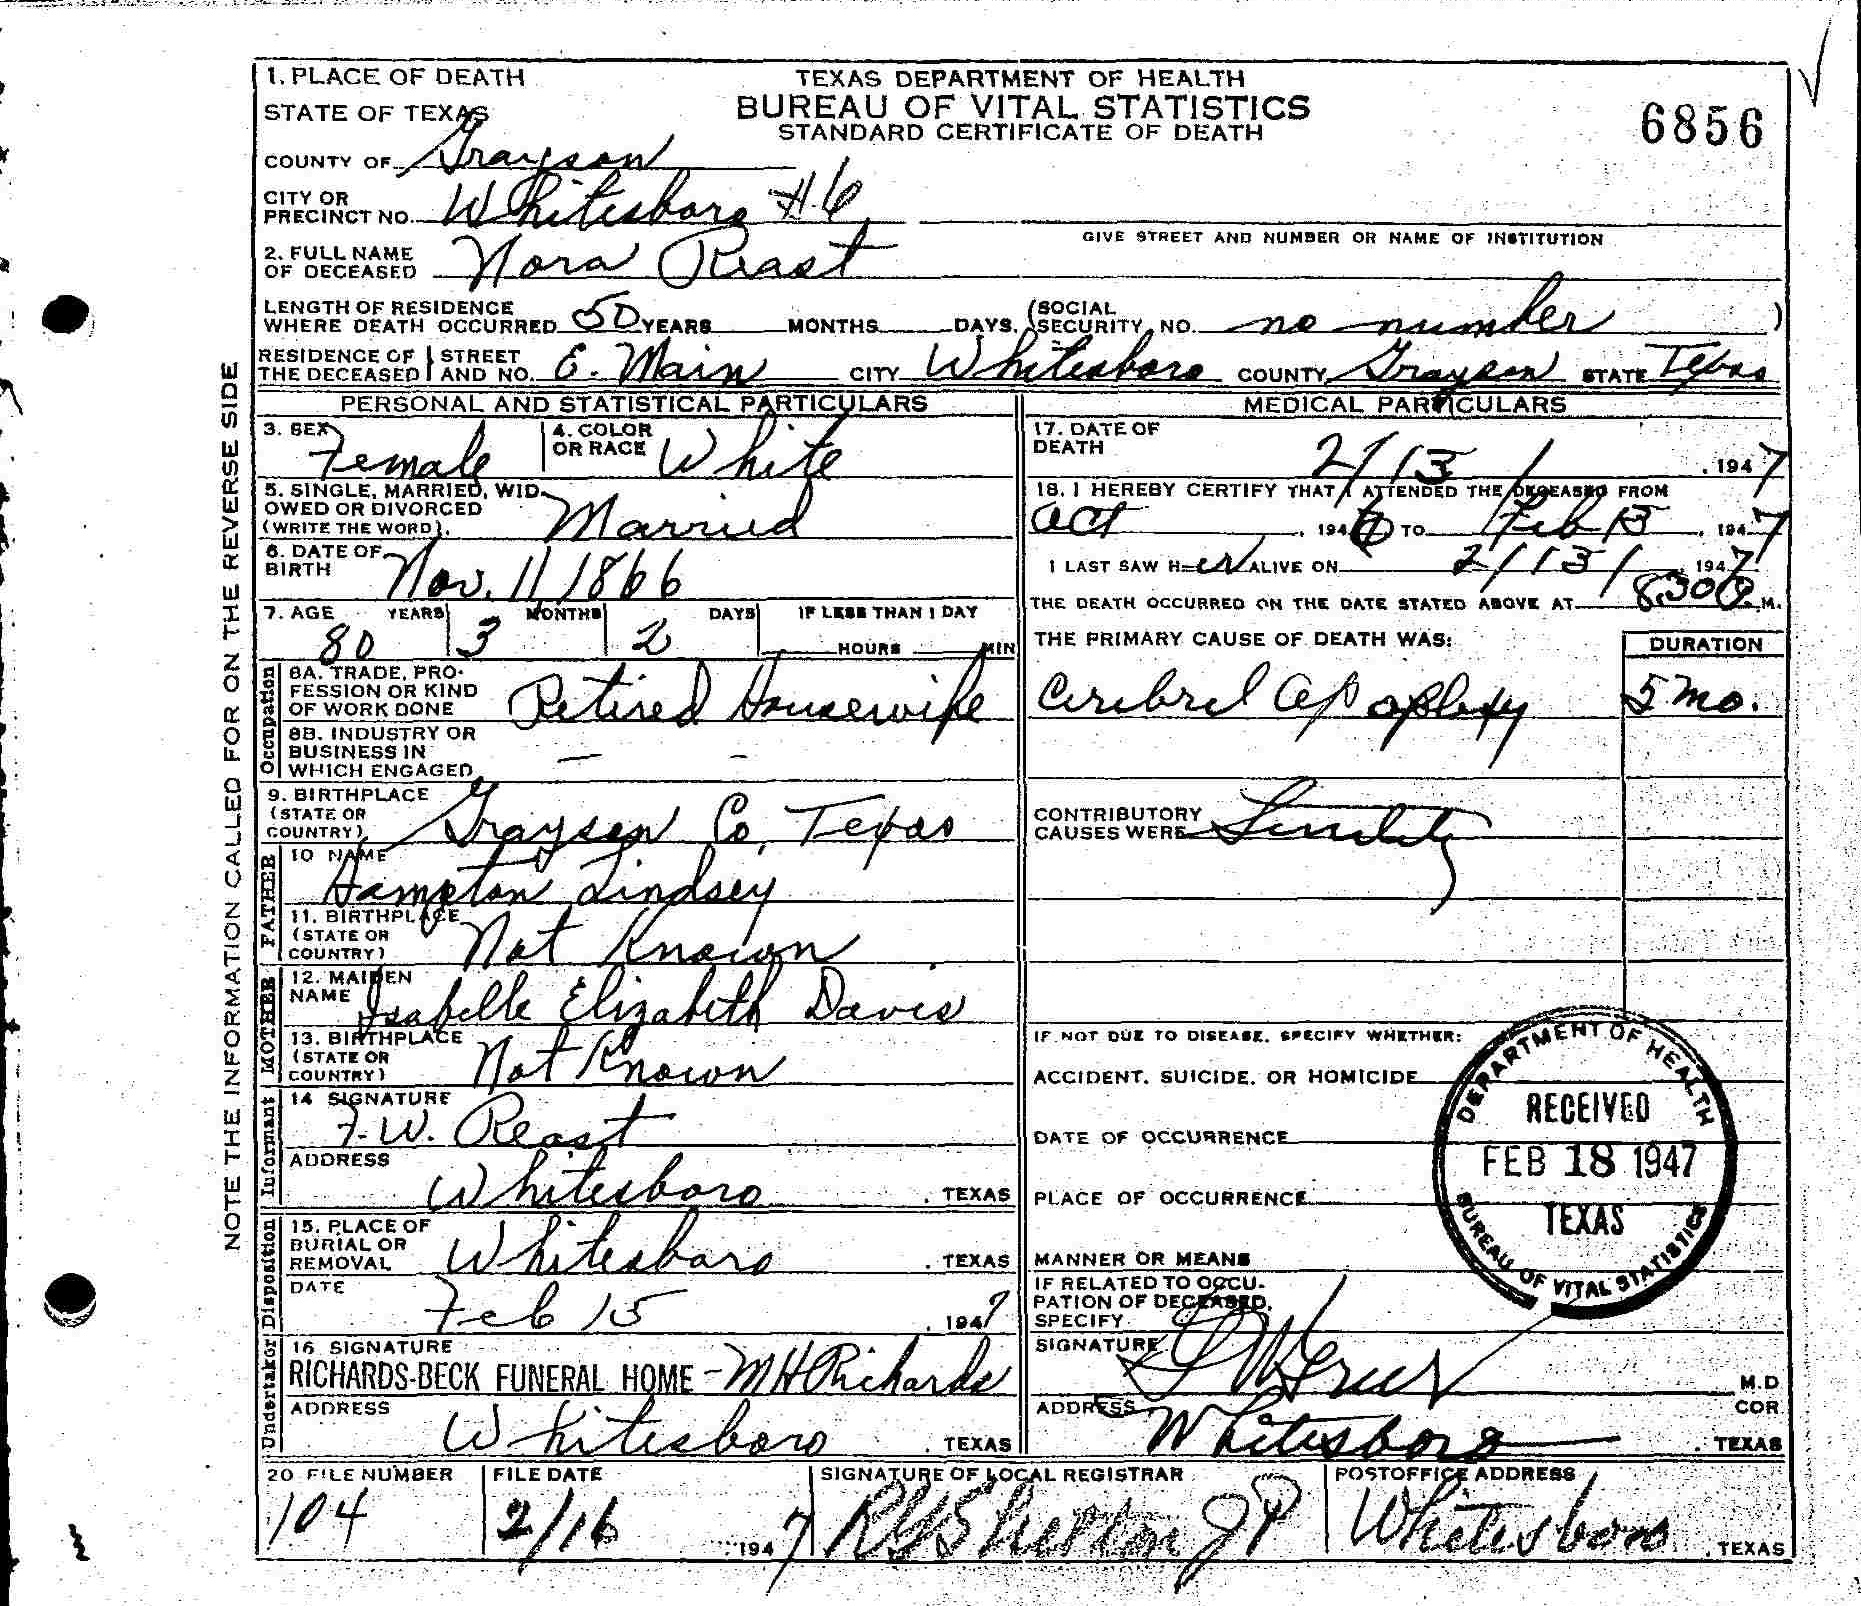 1. PLACE OF DEATH
TEXAS DEPARTMENT OF HEALTH
BUREAU OF VITAL STATISTICS
STANDARD CERTIFICATE OF DEATH
6856
STATE OF TEXAS
COUNTY OF Grayson
CITY OR PRECINCT NO. Whitesboro #6
GIVE STREET AND NUMBER OR NAME OF INSTITUTION
2. FULL NAME OF DECEASED Nora Reast
LENGTH OF RESIDENCE WHERE DEATH OCCURRED 50 YEARS MONTHS DAYS. (SOCIAL SECURITY NO. no number )
RESIDENCE OF THE DECEASED STREET AND NO. E. Main CITY Whitesboro COUNTY Grayson STATE Texas
PERSONAL AND STATISTICAL PARTICULARS
3. SEX Female 4. COLOR OR RACE White
5. SINGLE, MARRIED, WIDOWED OR DIVORCED (WRITE THE WORD). Married
6. DATE OF BIRTH Nov. 11, 1866
7. AGE YEARS MONTHS DAYS IF LESS THAN 1 DAY
80 3 2 HOURS MIN
Occupation
8A. TRADE, PROFESSION OR KIND OF WORK DONE Retired Housewife
8B. INDUSTRY OR BUSINESS IN WHICH ENGAGED — -
9. BIRTHPLACE (STATE OR COUNTRY) Grayson Co, Texas
FATHER
10 NAME Hampton Lindsey
11. BIRTHPLACE (STATE OR COUNTRY) Not Known
MOTHER
12. MAIDEN NAME Isabelle Elizabeth Davis
13. BIRTHPLACE (STATE OR COUNTRY) Not Known
Informant
14 SIGNATURE F.W. Reast
ADDRESS Whitesboro . TEXAS
Undertaker Disposition
15. PLACE OF BURIAL OR REMOVAL Whitesboro . TEXAS
DATE Feb 15 . 1947
16 SIGNATURE
RICHARDS-BECK FUNERAL HOME - MH Richards
ADDRESS Whitesboro . TEXAS
MEDICAL PARTICULARS
17. DATE OF DEATH 2/13/ . 1947
18. I HEREBY CERTIFY THAT I ATTENDED THE DECEASED FROM
Oct , 1946 TO Feb 13 , 1947
I LAST SAW HER ALIVE ON 2/13/ 1947
THE DEATH OCCURRED ON THE DATE STATED ABOVE AT 8:30 P. M.
THE PRIMARY CAUSE OF DEATH WAS: DURATION
Cerebrel Apoplexy 5 mo.
CONTRIBUTORY CAUSES WERE Senility
IF NOT DUE TO DISEASE, SPECIFY WHETHER:
ACCIDENT, SUICIDE, OR HOMICIDE
DATE OF OCCURRENCE
PLACE OF OCCURRENCE
MANNER OR MEANS
IF RELATED TO OCCUPATION OF DECEASED, SPECIFY
SIGNATURE M.D
ADDRESS COR
Whitesboro . TEXAS
DEPARTMENT OF HEALTH
RECEIVED
FEB 18 1947
TEXAS
BUREAU OF VITAL STATISTICS
20 FILE NUMBER 104
FILE DATE 2/16 1947
SIGNATURE OF LOCAL REGISTRAR JP
POSTOFFICE ADDRESS Whitesboro . TEXAS
NOTE THE INFORMATION CALLED FOR ON THE REVERSE SIDE